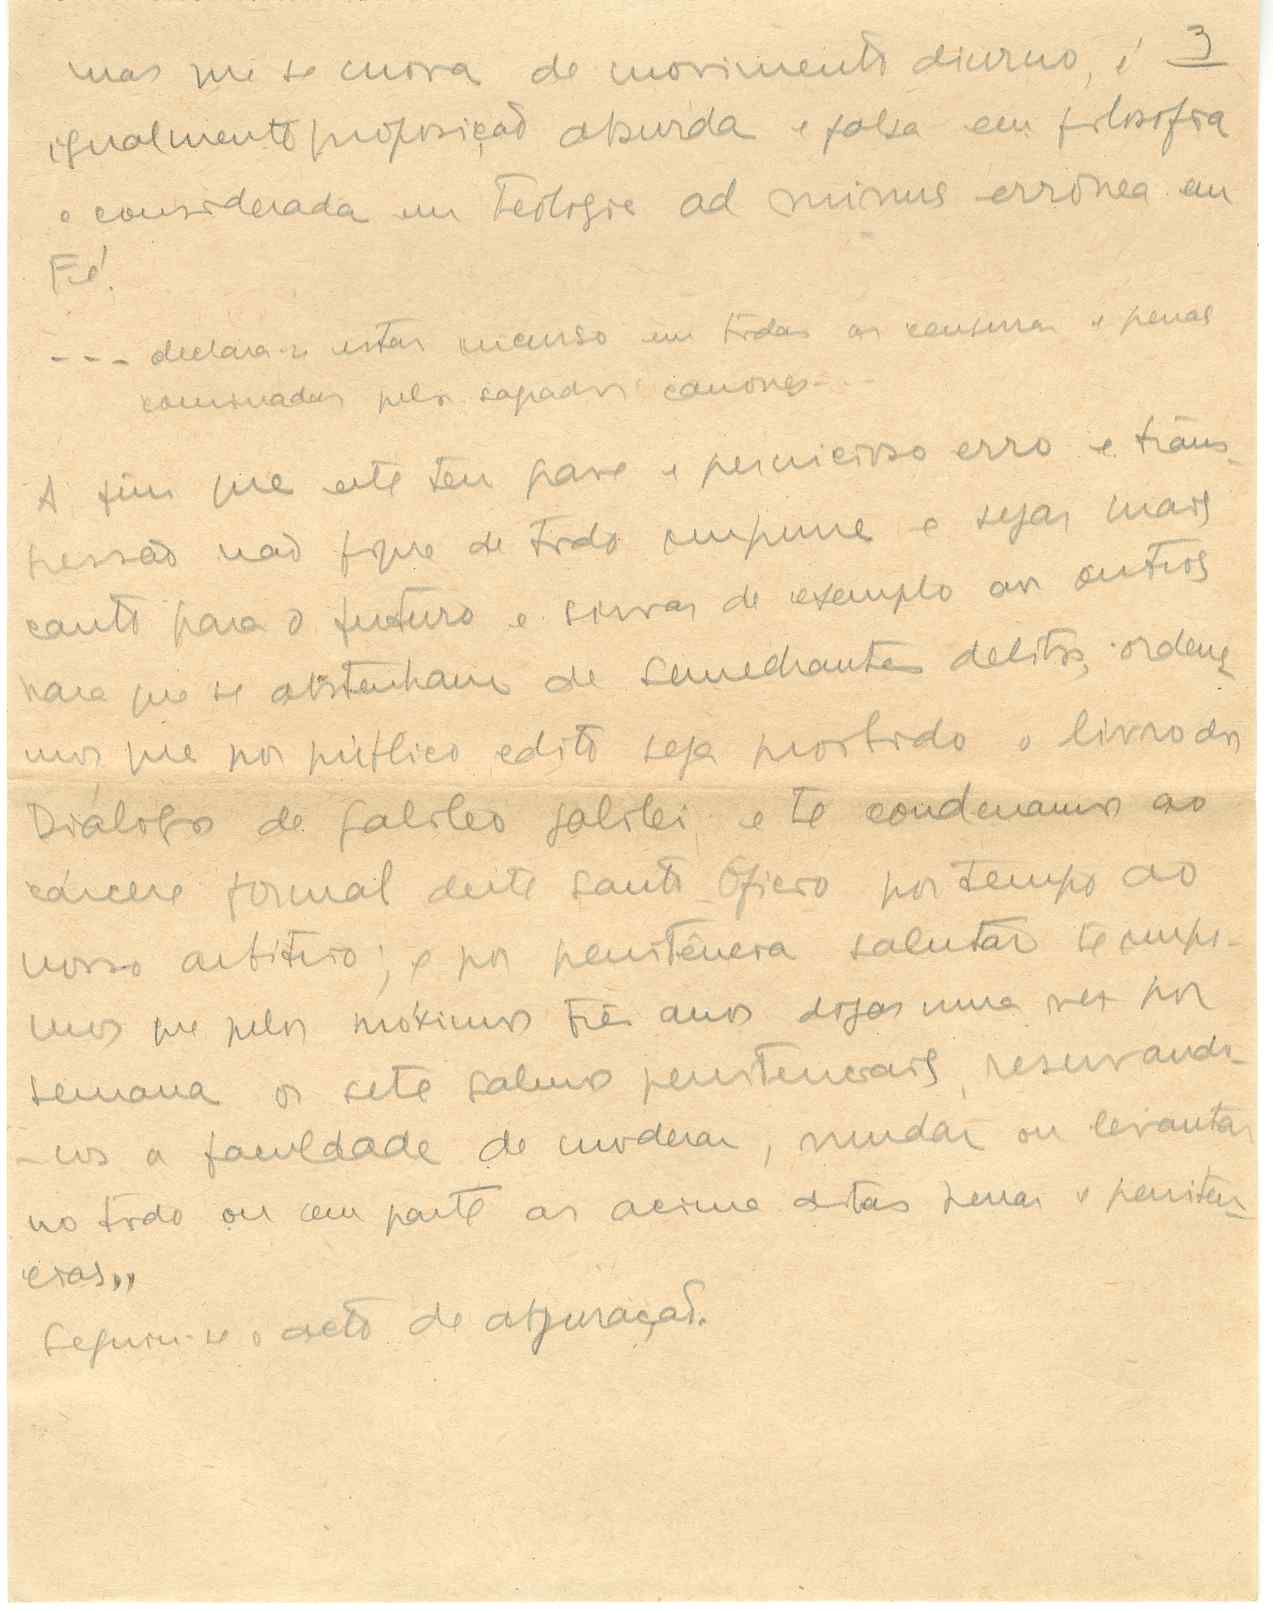 3
mas que se mova de movimento diurno, é
igualmente proposição absurda e falsa em filosofia
e considerada em Teologia ad minus errónea em
Fé.
--- declara-se estar incurso em todas as censuras e penas
cominadas pelos sagrados canones...
A fim que este teu grave e pernicioso erro e trans-
gressão não fique de todo impune e sejas mais
cauto para o futuro e sirvas de exemplo aos outros
para que se abstenham de semelhantes delitos, ordena-
mos que por público edito seja proibido o livro dos
Diálogos de Galileo Galilei e te condenamos ao
cárcere formal deste Santo Ofício por tempo ao
nosso arbítrio; e por penitência salutar te impo-
mos que pelos próximos três anos digas uma vez por
semana os sete salmos penitenciais, reservando-
-nos a faculdade de moderar, mudar ou levantar
no todo ou em parte as acima ditas penas e penitên-
cias"
Seguiu-se o acto de abjuração.